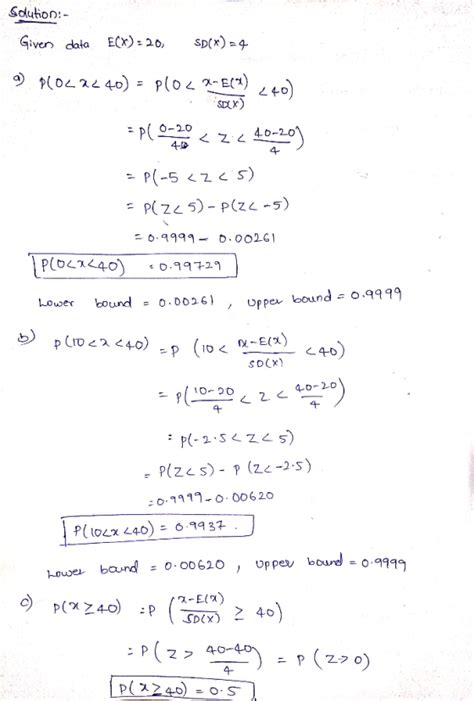 Solution:-
Given data E(X)=20, SD(X)=4
a) P(0<x<40) = P(0 < x-E(x)/SD(X) < 40)
= P(0-20/4 < Z < 40-20/4)
= P(-5 < Z < 5)
= P(Z<5) - P(Z<-5)
= 0.9999 - 0.00261
P(0<x<40) = 0.99729
Lower bound = 0.00261, upper bound = 0.9999
b) P(10<x<40) = P(10 < x-E(x)/SD(X) < 40)
= P(10-20/4 < Z < 40-20/4)
= P(-2.5 < Z < 5)
= P(Z<5) - P(Z<-2.5)
= 0.9999 - 0.00620
P(10<x<40) = 0.9937.
Lower bound = 0.00620, upper bound = 0.9999
c) P(x≥40) = P(x-E(x)/SD(X) ≥ 40)
= P(Z > 40-40/4) = P(Z>0)
P(x≥40) = 0.5